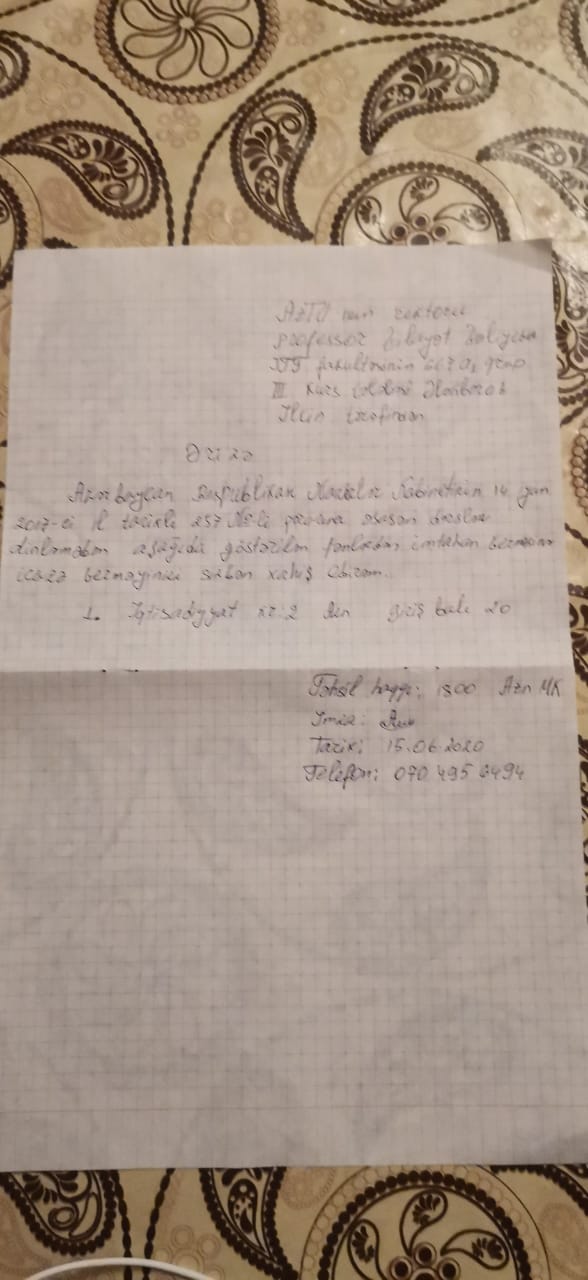 AzTU nun rektoru
professor Vilayət Vəliyev
fakultəsinin 667 a₂ qrup
III kurs tələbəsi
Ilkin tərəfindən
Ərizə
Azərbaycan Respublikası Nazirlər Kabinetinin 14 iyun
2017-ci il tarixli 257 №-li qərarına əsasən dərsləri
dinləmədən aşağıda göstərilən fənlərdən imtahan verməyimə
icazə verməyinizi sizdən xahiş edirəm.
1. İqtisadiyyat dən giriş balı 20
Təhsil haqqı: 1800 Azn MK
Imza:
Tarix: 15.06.2020
Telefon: 070 495 6494